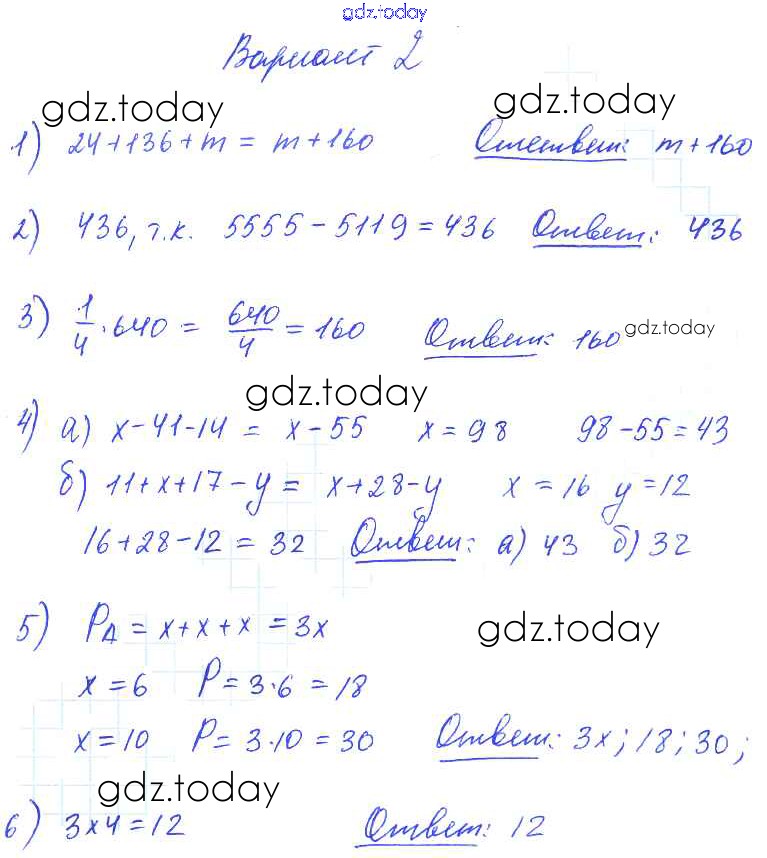 gdz.today
Вариант 2
gdz.today gdz.today
1) 24+136+m = m+160 Ответ: m+160
2) 436, т.к. 5555-5119=436 Ответ: 436
3) 1/4·640 = 640/4 = 160 Ответ: 160 gdz.today
gdz.today
4) а) x-41-14 = x-55 x=98 98-55=43
б) 11+x+17-y = x+28-y x=16 y=12
16+28-12=32 Ответ: а) 43 б) 32
5) P∆ = x+x+x=3x gdz.today
x=6 P=3·6=18
x=10 P=3·10=30 Ответ: 3x; 18; 30;
gdz.today
6) 3×4=12 Ответ: 12